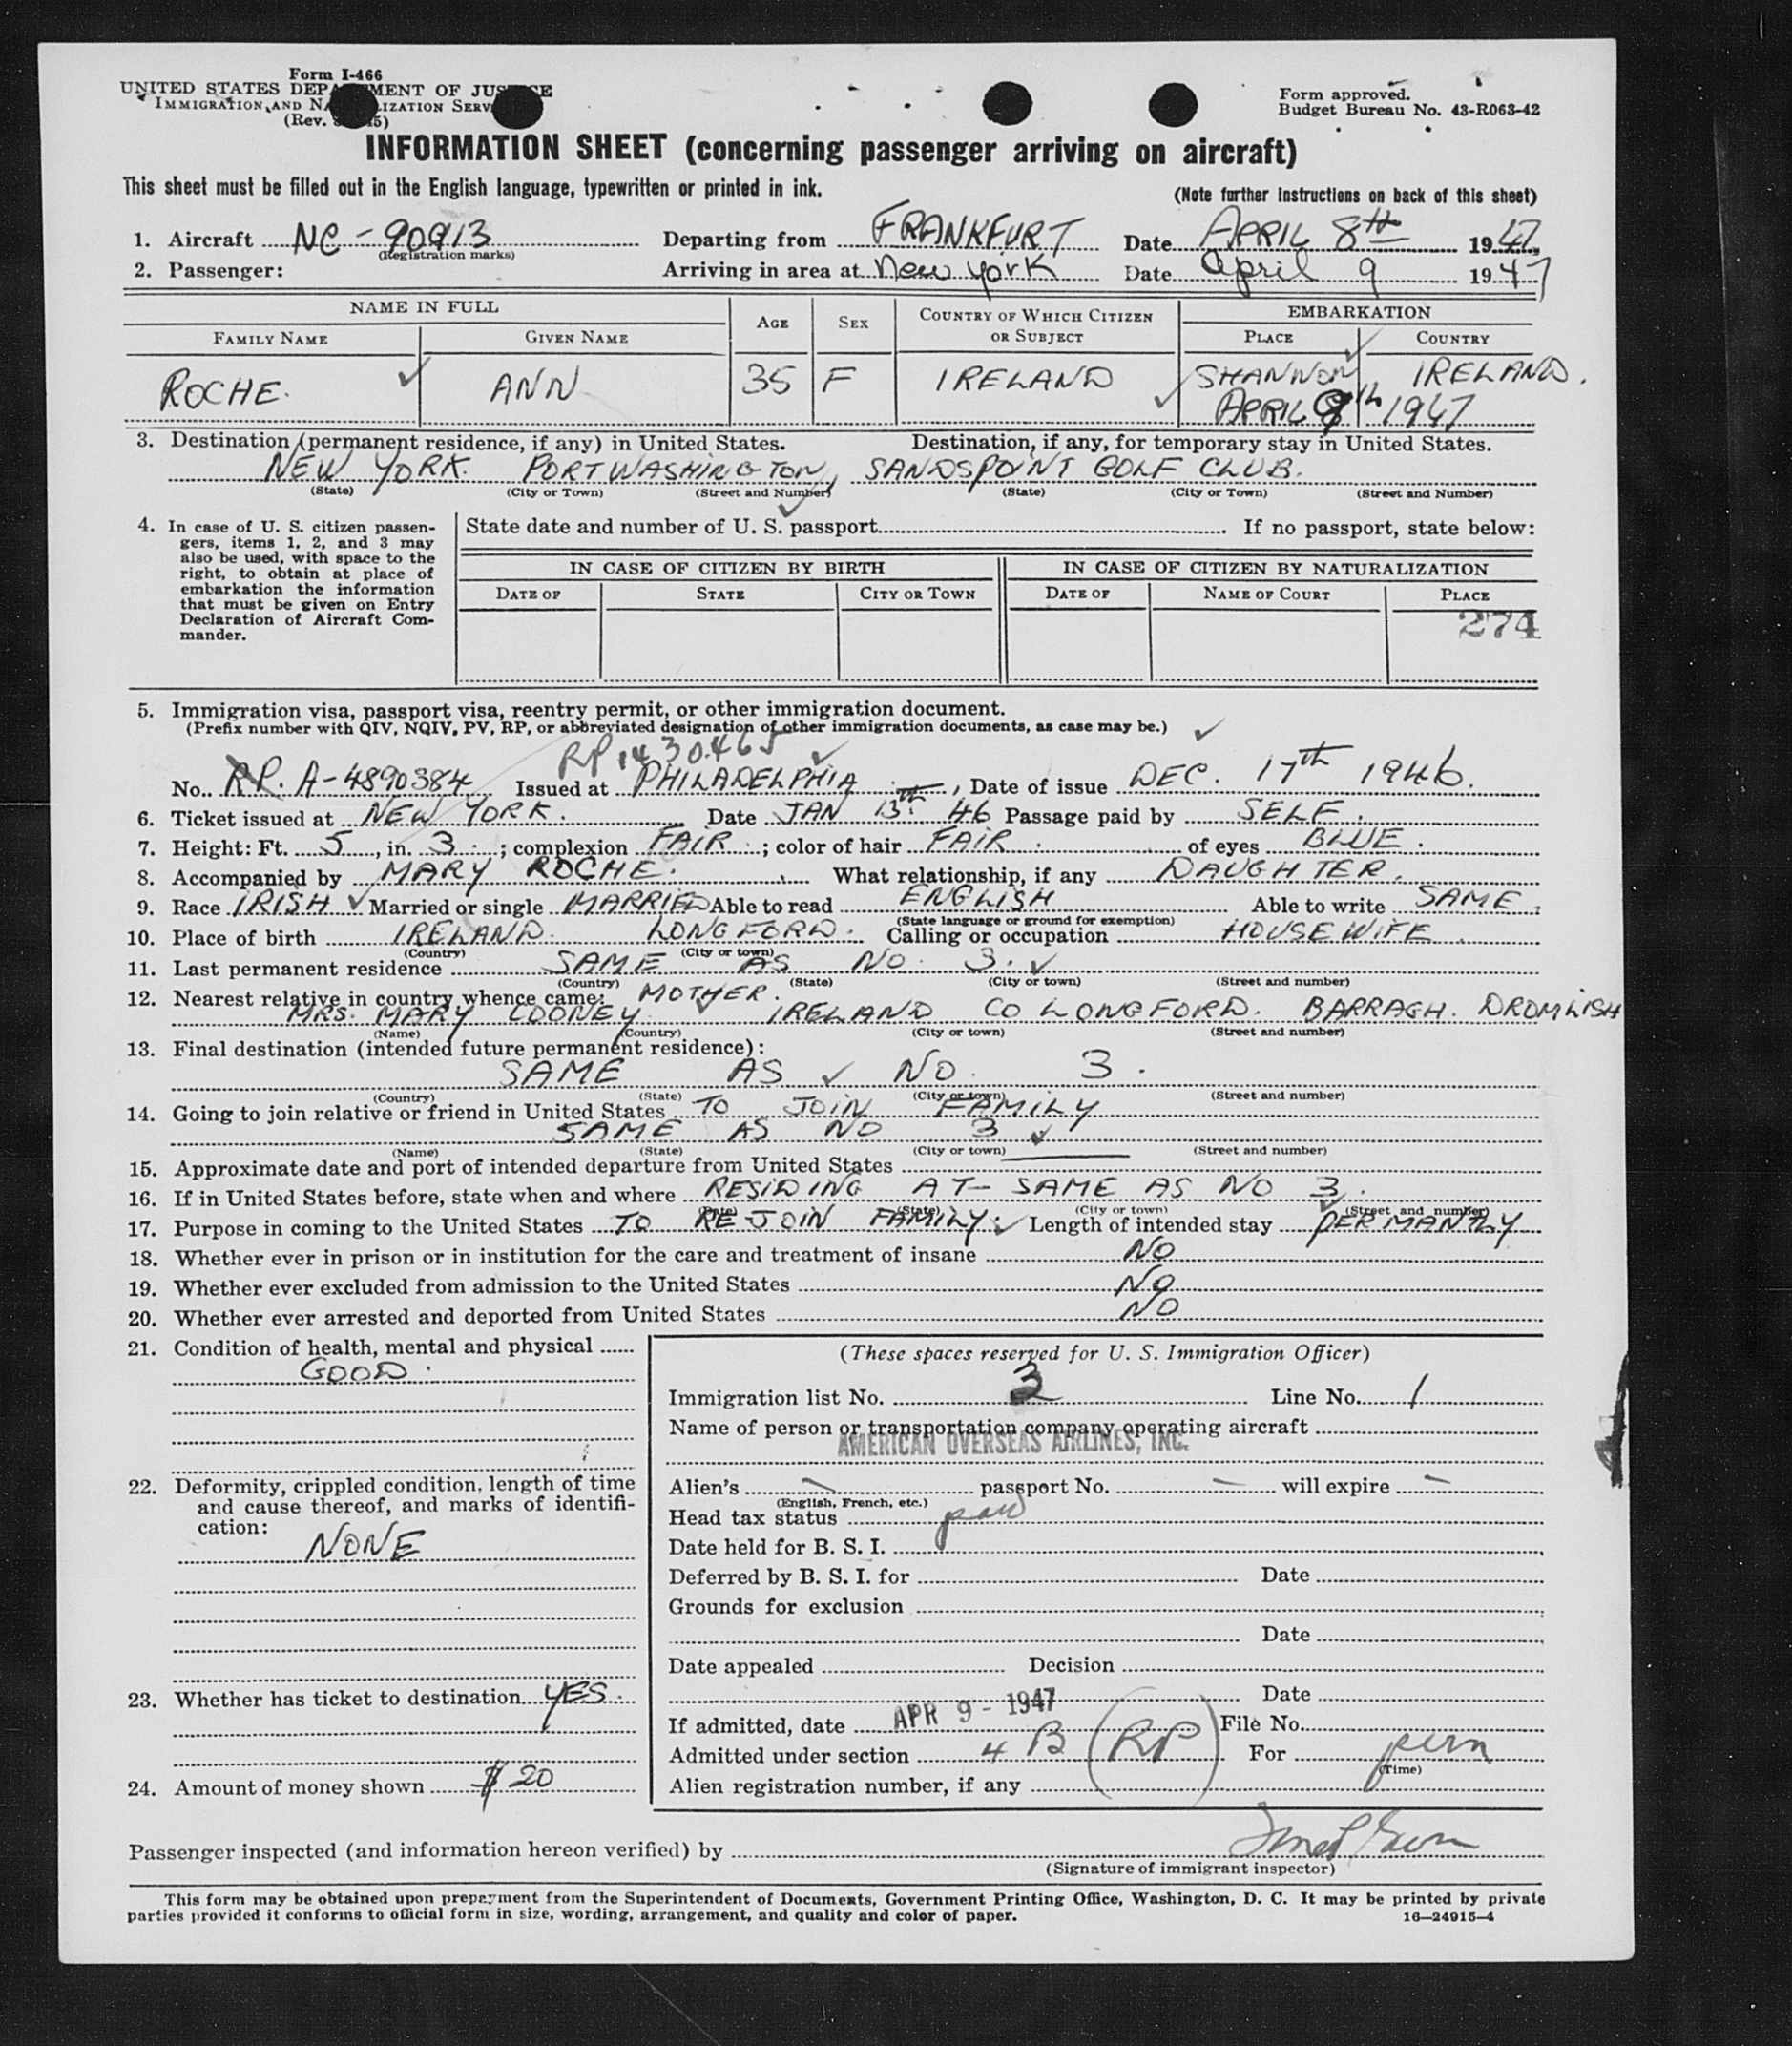 Form I-466
UNITED STATES DEPARTMENT OF JUSTICE
IMMIGRATION AND NATURALIZATION SERVICE
(Rev.
Form approved.
Budget Bureau No. 43-R063-42
INFORMATION SHEET (concerning passenger arriving on aircraft)
This sheet must be filled out in the English language, typewritten or printed in ink.
(Note further instructions on back of this sheet)
1. Aircraft NC-90913 Departing from FRANKFURT Date APRIL 8th 1947
(Registration marks)
2. Passenger: Arriving in area at New York Date April 9 1947
NAME IN FULL AGE SEX COUNTRY OF WHICH CITIZEN OR SUBJECT EMBARKATION
FAMILY NAME GIVEN NAME PLACE COUNTRY
ROCHE. ANN 35 F IRELAND SHANNON IRELAND.
APRIL 9th 1947
3. Destination (permanent residence, if any) in United States. Destination, if any, for temporary stay in United States.
NEW YORK. PORT WASHINGTON, SANDSPOINT GOLF CLUB.
(State) (City or Town) (Street and Number) (State) (City or Town) (Street and Number)
4. In case of U. S. citizen passengers, items 1, 2, and 3 may also be used, with space to the right, to obtain at place of embarkation the information that must be given on Entry Declaration of Aircraft Commander.
State date and number of U. S. passport If no passport, state below:
IN CASE OF CITIZEN BY BIRTH IN CASE OF CITIZEN BY NATURALIZATION
DATE OF STATE CITY OR TOWN DATE OF NAME OF COURT PLACE
274
5. Immigration visa, passport visa, reentry permit, or other immigration document.
(Prefix number with QIV, NQIV, PV, RP, or abbreviated designation of other immigration documents, as case may be.)
RP 1430465
No. RP. A-4890384 Issued at PHILADELPHIA, Date of issue DEC. 17th 1946.
6. Ticket issued at NEW YORK. Date JAN 13th 46 Passage paid by SELF.
7. Height: Ft. 5, in. 3; complexion FAIR; color of hair FAIR. of eyes BLUE.
8. Accompanied by MARY ROCHE. What relationship, if any DAUGHTER.
9. Race IRISH Married or single MARRIED Able to read ENGLISH Able to write SAME.
(State language or ground for exemption)
10. Place of birth IRELAND. LONGFORD. Calling or occupation HOUSEWIFE.
(Country) (City or town)
11. Last permanent residence SAME AS NO. 3.
(Country) (State) (City or town) (Street and number)
12. Nearest relative in country whence came: MOTHER.
MRS. MARY COONEY IRELAND CO LONGFORD. BARRAGH. DROMLISH
(Name) (Country) (City or town) (Street and number)
13. Final destination (intended future permanent residence):
SAME AS NO. 3.
(Country) (State) (City or town) (Street and number)
14. Going to join relative or friend in United States TO JOIN FAMILY
SAME AS NO 3
(Name) (State) (City or town) (Street and number)
15. Approximate date and port of intended departure from United States
16. If in United States before, state when and where RESIDING AT- SAME AS NO 3.
(Date) (State) (City or town) (Street and number)
17. Purpose in coming to the United States TO RE-JOIN FAMILY. Length of intended stay PERMANTLY
18. Whether ever in prison or in institution for the care and treatment of insane NO
19. Whether ever excluded from admission to the United States NO
20. Whether ever arrested and deported from United States NO
21. Condition of health, mental and physical
GOOD.
22. Deformity, crippled condition, length of time and cause thereof, and marks of identification:
NONE
23. Whether has ticket to destination YES.
24. Amount of money shown $20
(These spaces reserved for U. S. Immigration Officer)
Immigration list No. 3 Line No. 1
Name of person or transportation company operating aircraft
AMERICAN OVERSEAS AIRLINES, INC.
Alien's passport No. will expire
(English, French, etc.)
Head tax status
Date held for B. S. I.
Deferred by B. S. I. for Date
Grounds for exclusion
Date
Date appealed Decision
Date
If admitted, date APR 9 - 1947 File No.
Admitted under section 4 B (RP) For perm
(Time)
Alien registration number, if any
Passenger inspected (and information hereon verified) by
(Signature of immigrant inspector)
This form may be obtained upon prepayment from the Superintendent of Documents, Government Printing Office, Washington, D. C. It may be printed by private
parties provided it conforms to official form in size, wording, arrangement, and quality and color of paper. 16—24915-4